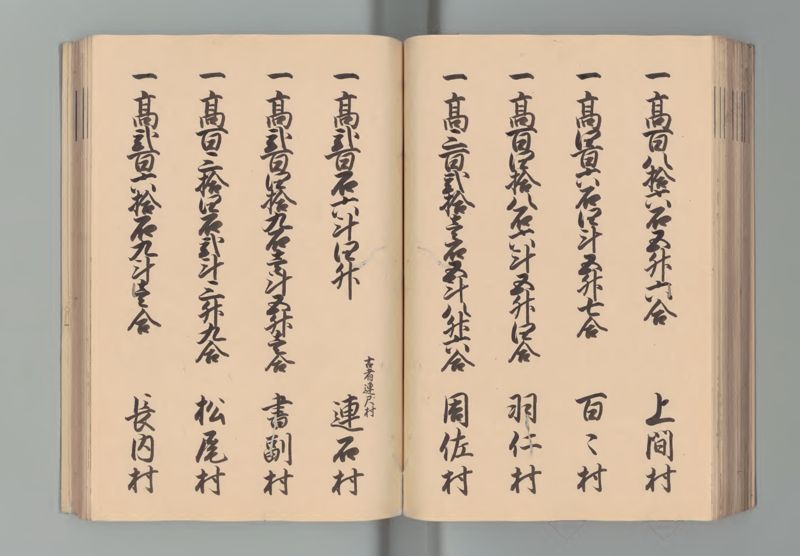 一 高百八拾六石五升六合 上間村
一 高四百六石四斗五升七合 百々村
一 高百四拾八石六斗五升四合 羽仁村
一 高三百弐拾壱石五斗八升六合 周佐村
古者連尺村
一 高弐百石六斗四升 連石村
一 高弐百四拾九石壱斗五升壱合 書副村
一 高百三拾四石弐斗三升九合 松尾村
一 高弐百六拾石九斗壱合 長内村